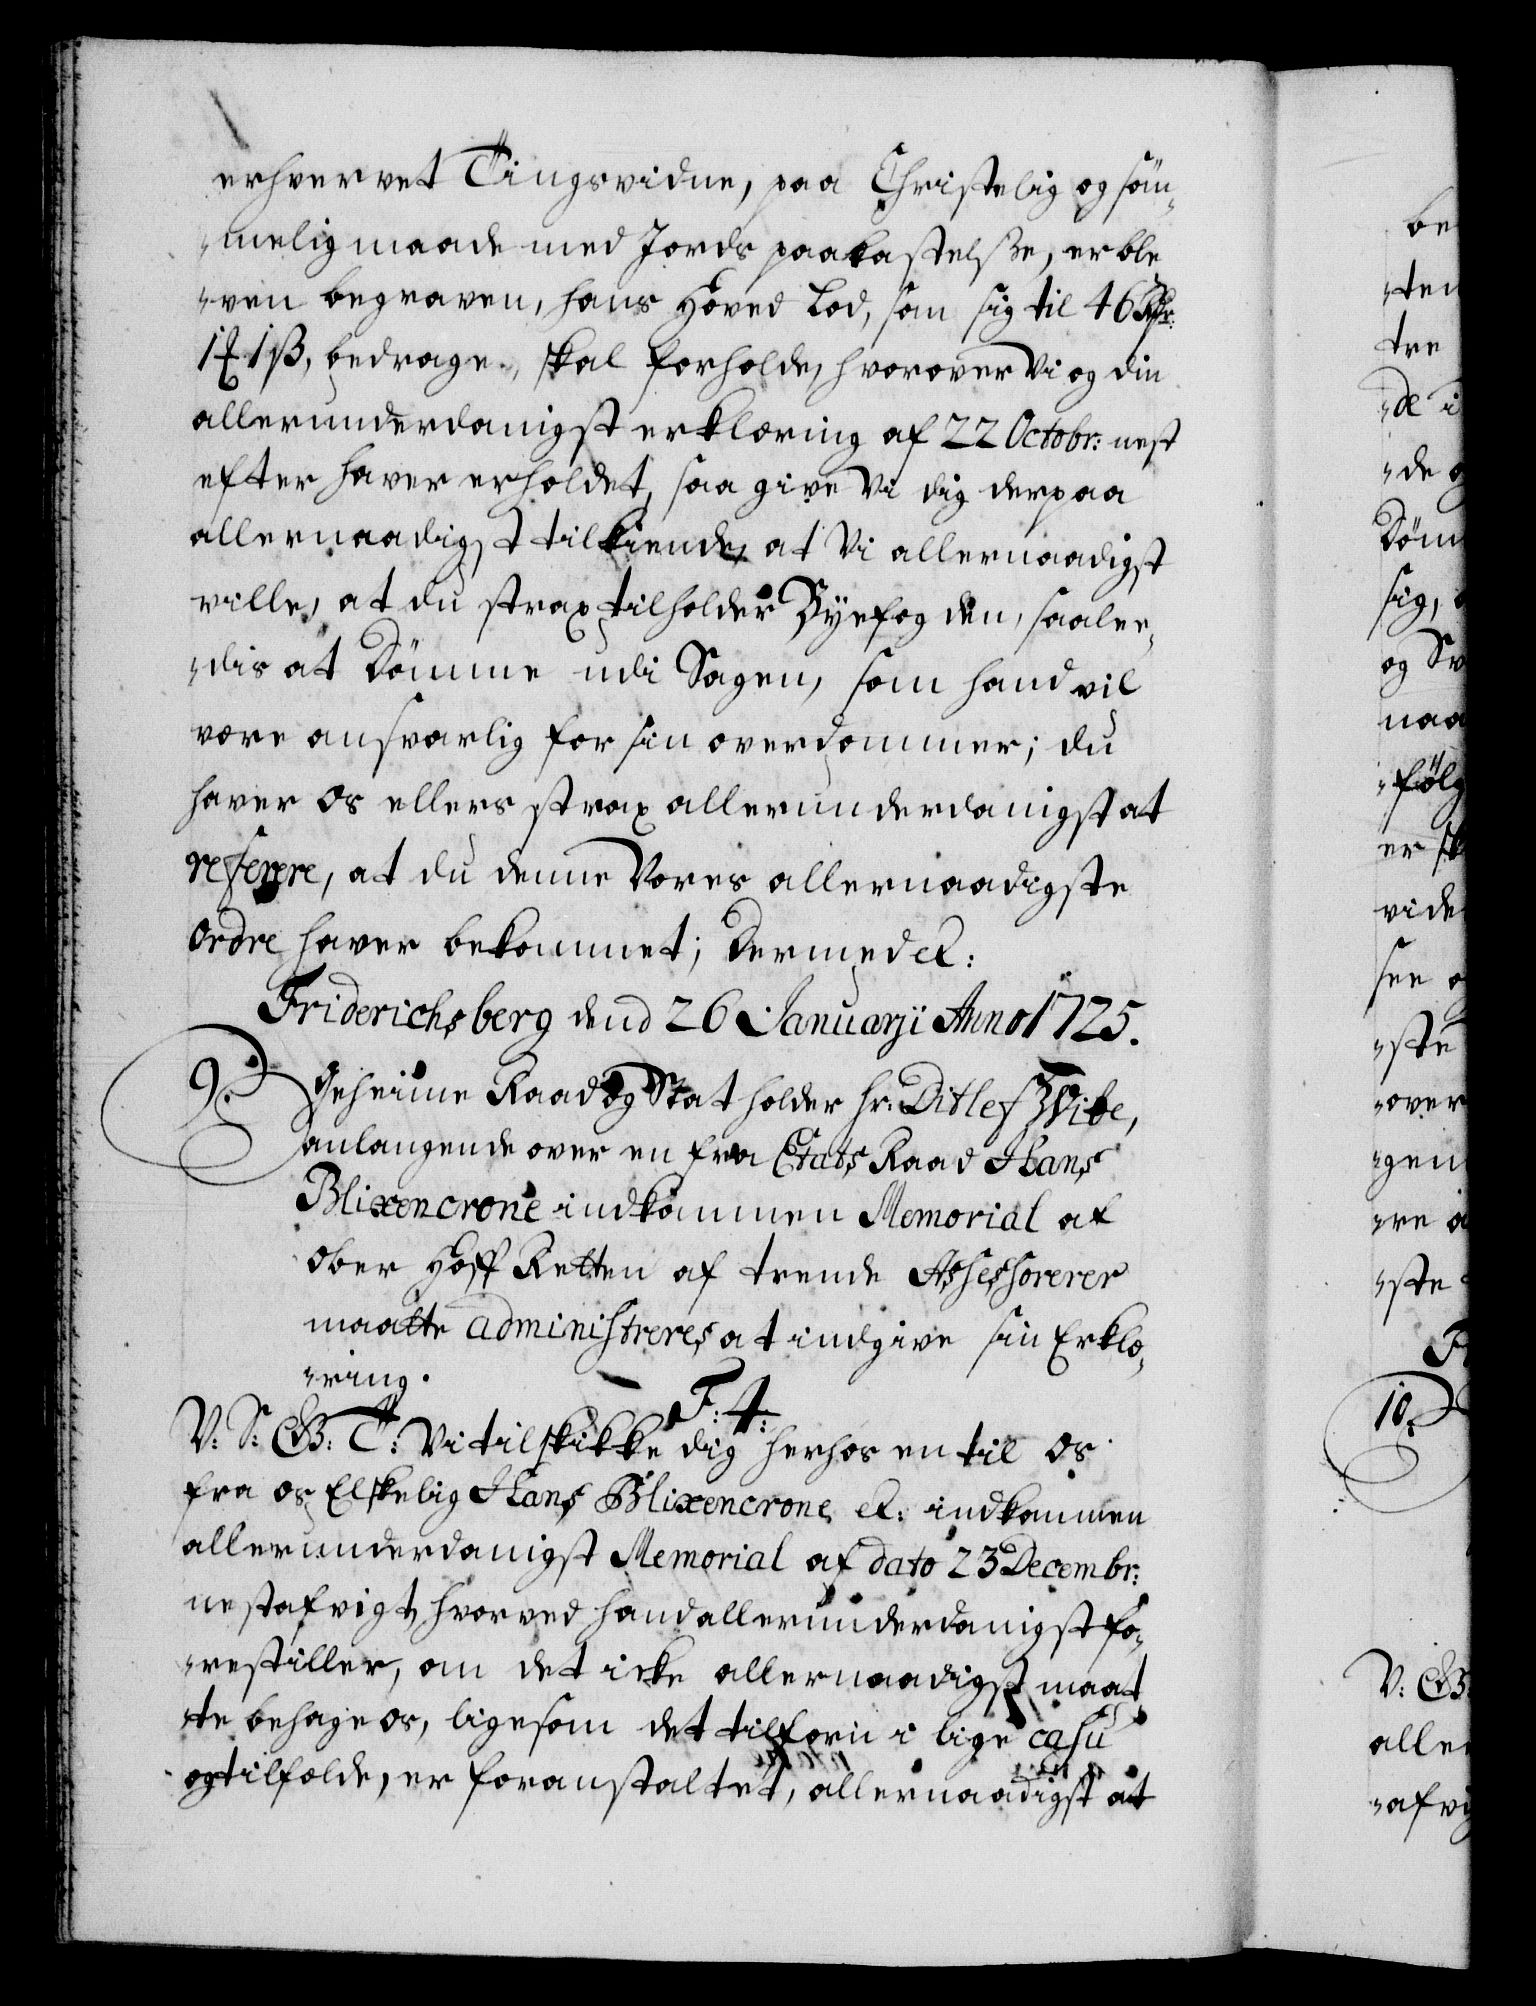 erhvervet Tingsvidne, paa Christelig og søm-
melig maade med Jords paakastelsse, er ble
ven begraven, hans Hoved Lod, som sig til 46 Rdr:
1 ß, bedrage, skal forholde, hvorover Vi og din
allerunderdanigst erklæring af 22 Octobr: nest
efter haver erholdet, saa give Vi dig derpaa
allernaadigst tilkiende, at Vi allernaadigst
ville, at du strax tilholder Byefogden, saalee-
dis at Dömme udi Sagen, som hand vil
være ansvarlig for sin overdommer; du
haver os ellers strax allerunderdanigst at
referere, at du denne Vores allernaadigste
Ordre haver bekommet; Dermed etc:
Friderichsberg dend 26 Januarii Anno 1725.
9. Geheime Raad og Statholder hr: Ditlef Wibe,
anlangende over en fra Etats Raad Hans
Blixencrone indkommen Memorial af
Ober Hoff Retten af trende Assessorerer
maatte administreres at indgive sin Erklæ-
ring.
F: 4:
V: S: G: T: Vi tilskikke dig herhos en til Os
fra os Elskelig Hans Blixencrone etc: indkommen
allerunderdanigst Memorial af dato 23 Decembr:
nestafvigt, hvorved hand allerunderdanigst fo-
restiller, om det icke allernaadigst maat
te behage os, ligesom det tilforn i lige casu
og tilfælde, er foranstaltet, allernaadigst at